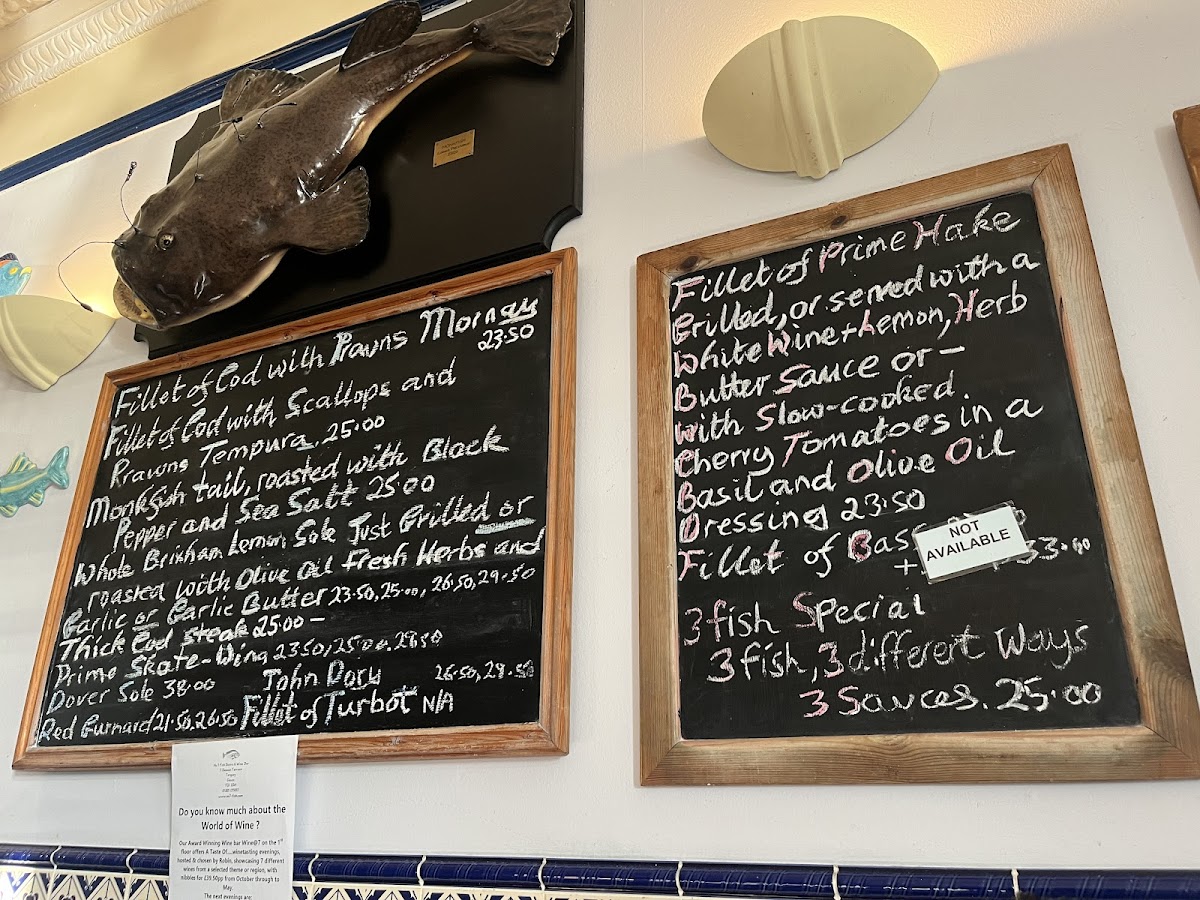 Fillet of Cod with Prawns Mornay
23.50
Fillet of Cod with Scallops and
Prawns Tempura. 25.00
Monkfish tail, roasted with Black
Pepper and Sea Salt 25.00
Whole Brixham Lemon Sole Just Grilled or
roasted with Olive Oil Fresh Herbs and
Garlic or Garlic Butter 23.50, 25.00, 26.50, 29.50
Thick Cod Steak 25.00 –
Prime Skate-Wing 23.50, 25.00, 28.50
Dover Sole 38.00 John Dory 26.50, 28.50
Red Gurnard 21.50, 26.50 Fillet of Turbot N/A
Fillet of Prime Hake
Grilled, or served with a
White Wine + Lemon, Herb
Butter Sauce or –
With Slow-cooked.
Cherry Tomatoes in a
Basil and Olive Oil
Dressing 23.50
Fillet of Bass
+ 33.00
NOT
AVAILABLE
3 fish Special
3 fish, 3 different Ways
3 Sauces. 25.00
Do you know much about the
World of Wine ?
Our Award Winning Wine bar Wine@7 on the 1st
floor offers A Taste Of....winetasting evenings,
hosted & chosen by Robin, showcasing 7 different
wines from a selected theme or region, with
nibbles for £39.50pp from October through to
May.
The next evenings are: